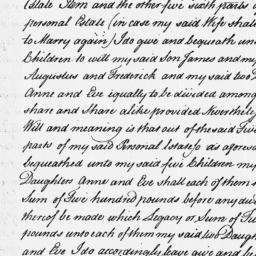 Estate Item and the other five sixth parts o
personal Estate (in case my said Wife shall
to Marry again) I do give and bequeath un
Children to will my said Son James and my
Augustus and Frederick and my said two D
Anne and Eve equally to be divided among
share and Share alike provided Neverthele
Will and meaning is that out of the said Five
parts of my said Personal Estate so as aforesa
bequeathed unto my said five Children my
Daughters Anne and Eve shall each of them
Sum of Five hundred pounds before any div
thereof be made which Legacy or Sum of Five
pounds unto each of them my said two Daugh
and Eve I do accordingly leave give and be